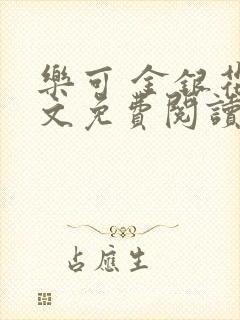 樂可 金銀花
文免費閱讀
占應生